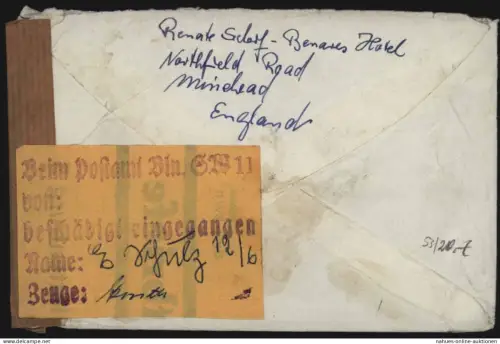 Renate Scharf - Benares Hotel
Northfield Road
Minehead
England
Beim Postamt Bln. SW 11
vorl.
beschädigt eingegangen
Name: E Schulz 12/6
Zeuge:
www.nahues-online-auktionen